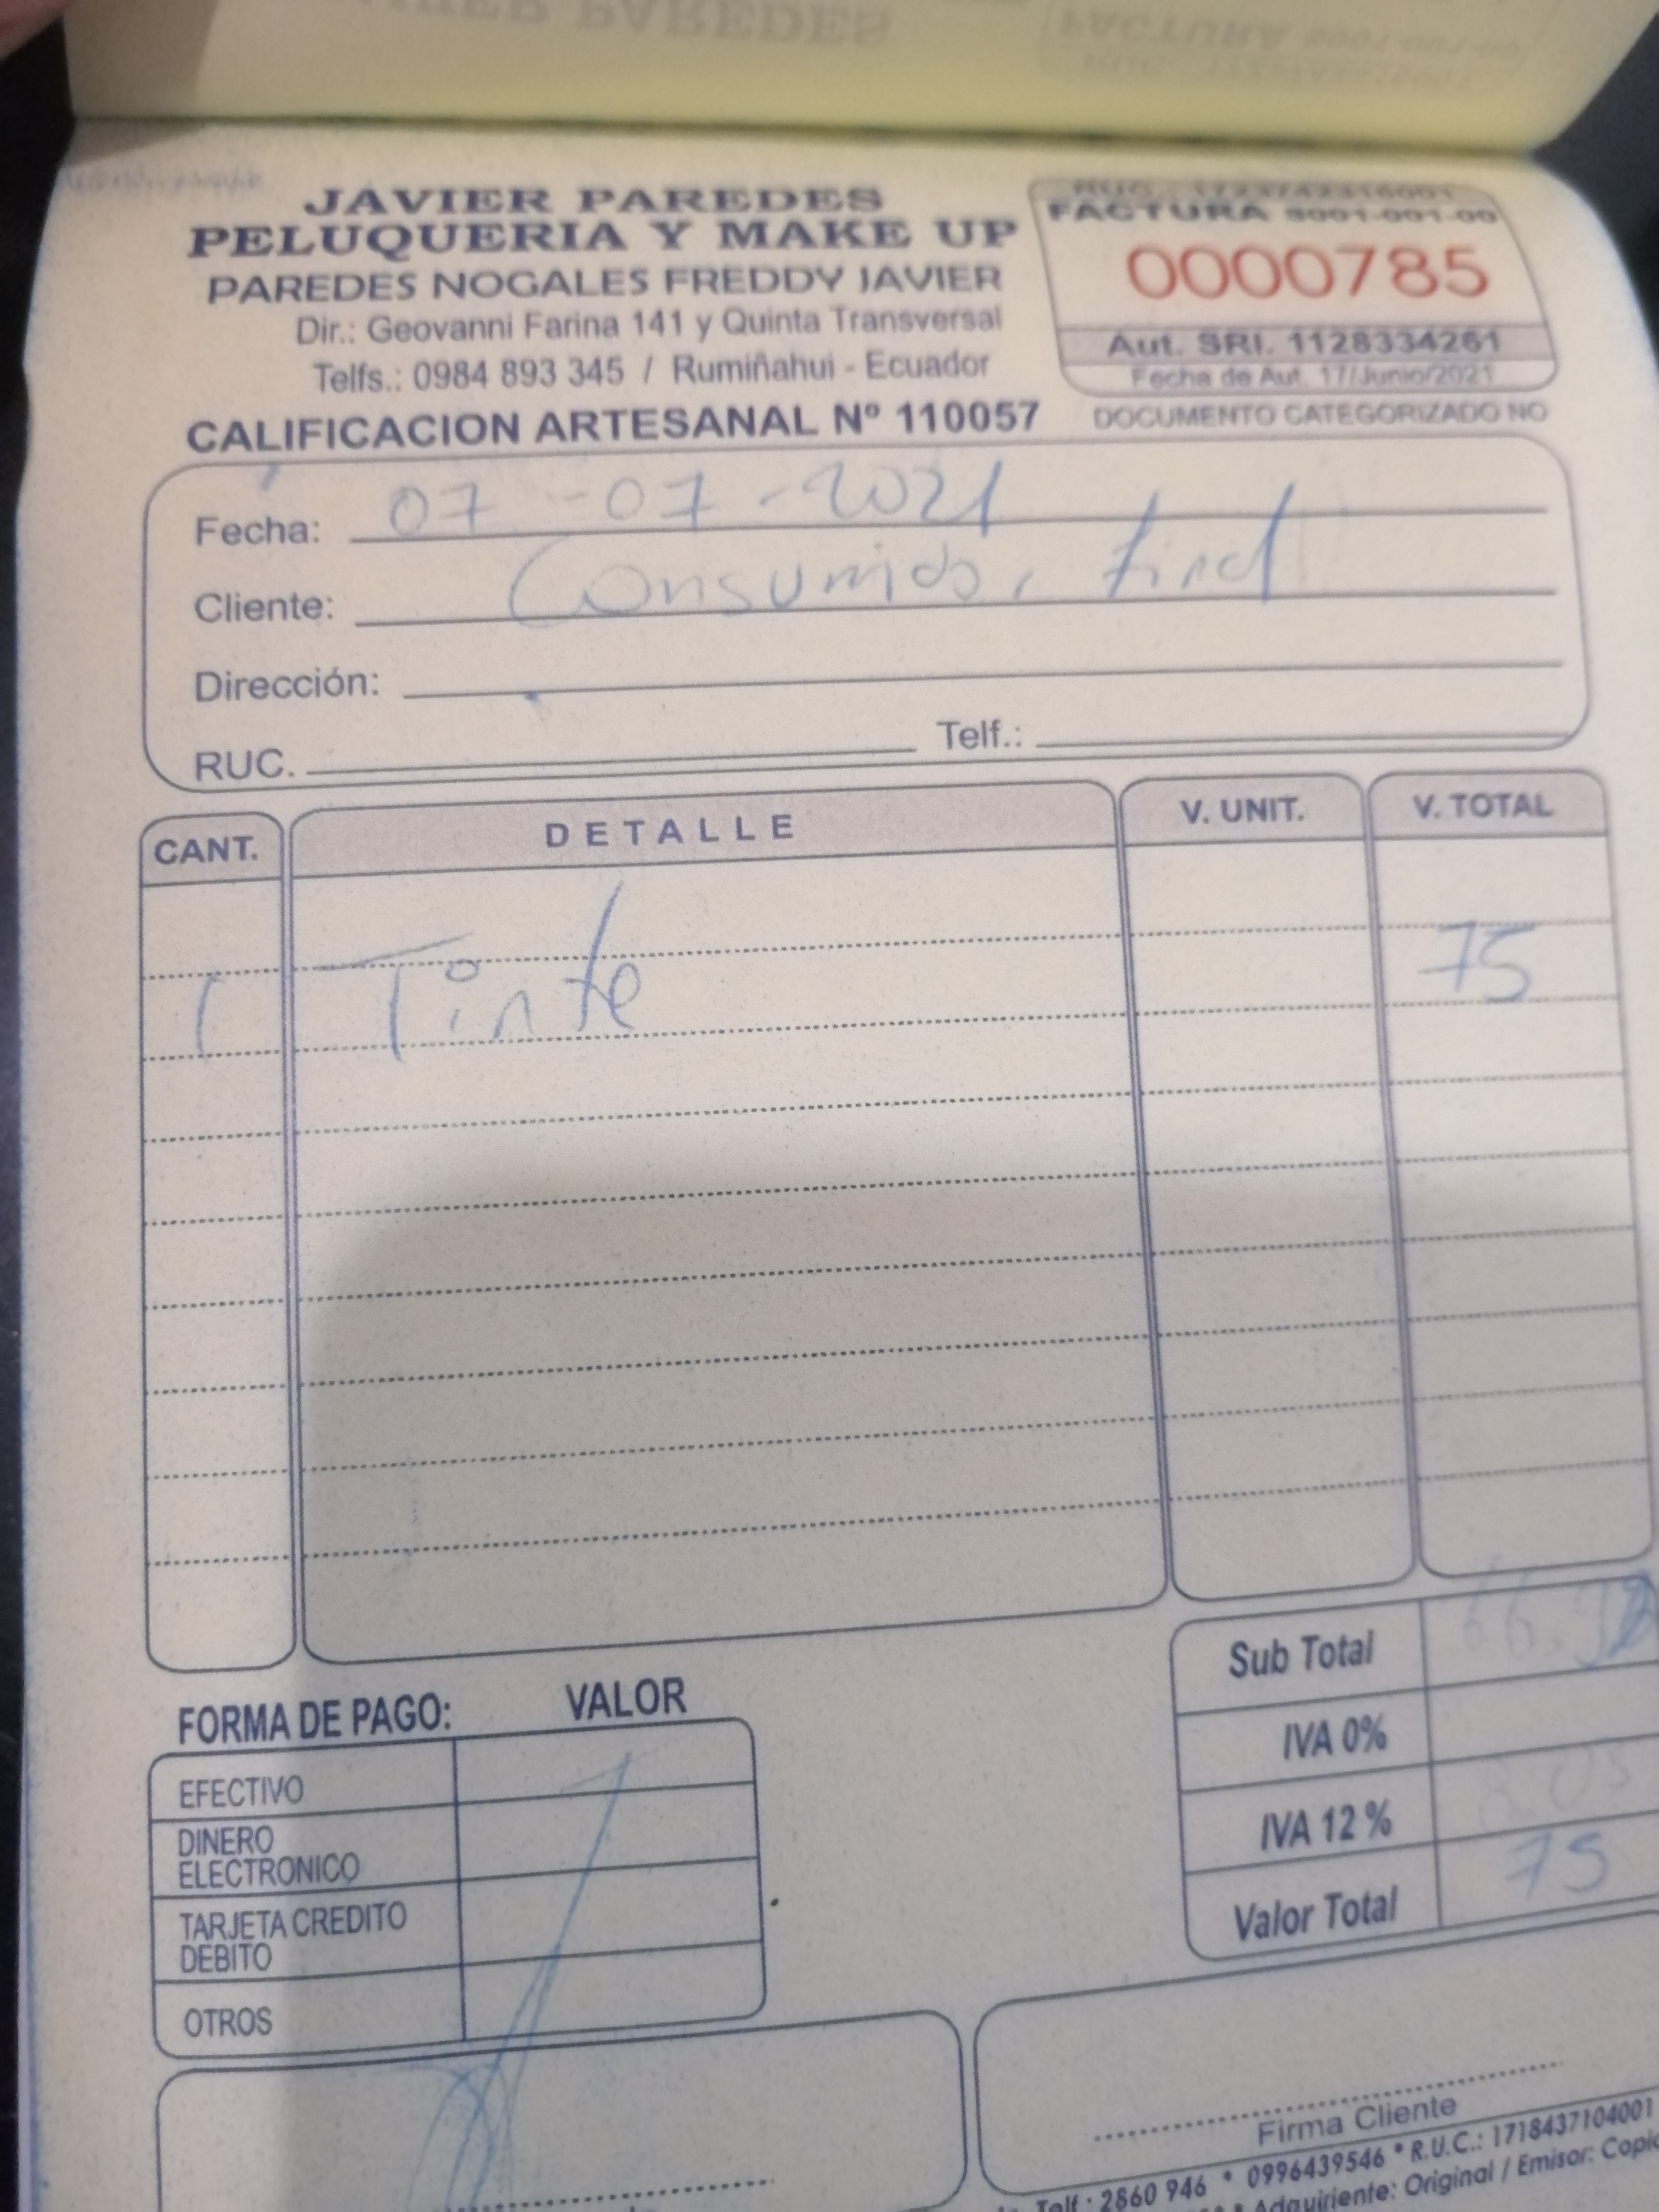 JAVIER PAREDES
PELUQUERIA Y MAKE UP
PAREDES NOGALES FREDDY JAVIER
Dir.: Geovanni Farina 141 y Quinta Transversal
Telfs.: 0984 893 345 / Rumiñahui - Ecuador
CALIFICACION ARTESANAL Nº 110057
FACTURA S001-001-00
0000785
Aut. SRI. 1128334261
Fecha de Aut. 17/Junio/2021
DOCUMENTO CATEGORIZADO NO
Fecha: 07-07-2021
Cliente: Consumidor final
Dirección:
RUC. Telf.:
CANT. DETALLE V. UNIT. V. TOTAL
1 Tinte 75
Sub Total 66.92
IVA 0%
IVA 12 %
Valor Total 75
FORMA DE PAGO: VALOR
EFECTIVO
DINERO
ELECTRONICO
TARJETA CREDITO
DEBITO
OTROS
Firma Cliente
Telf.: 2860 946 * 0996439546 * R.U.C.: 1718437104001
Adquiriente: Original / Emisor: Copia